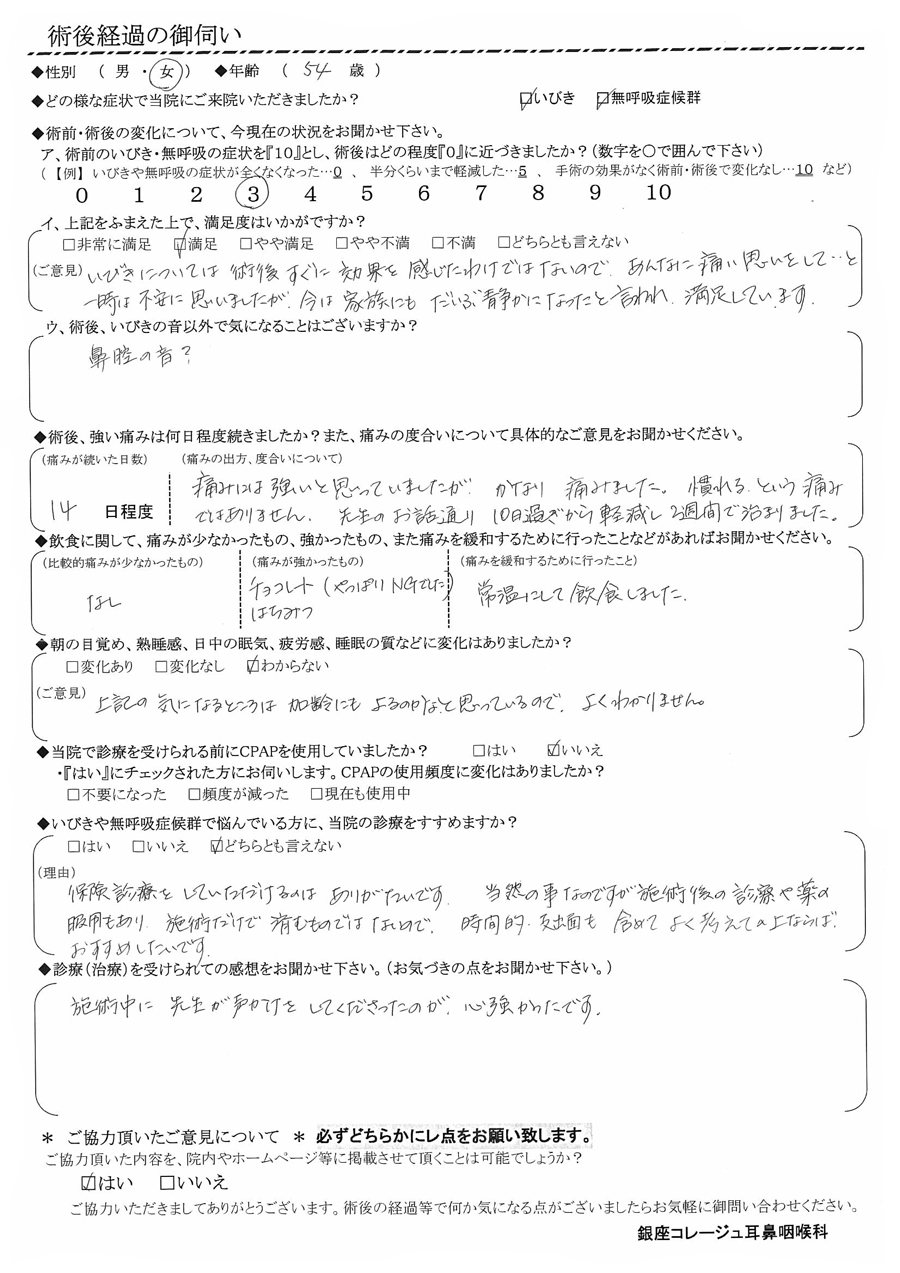 術後経過の御伺い
◆性別 （ 男 ・ 女 ） ◆年齢 （ 54 歳 ）
◆どの様な症状で当院にご来院いただきましたか？ ☑いびき ☑無呼吸症候群
◆術前・術後の変化について、今現在の状況をお聞かせ下さい。
ア、術前のいびき・無呼吸の症状を『10』とし、術後はどの程度『0』に近づきましたか？（数字を〇で囲んで下さい）
（【例】 いびきや無呼吸の症状が全くなくなった…0 、 半分くらいまで軽減した…5 、 手術の効果がなく術前・術後で変化なし…10 など）
0 1 2 3 4 5 6 7 8 9 10
イ、上記をふまえた上で、満足度はいかがですか？
□非常に満足 ☑満足 □やや満足 □やや不満 □不満 □どちらとも言えない
（ご意見） いびきについては 術後 すぐに 効果を 感じたわけではないので、あんなに痛い思いをして…と
一時は 不安に 思いましたが、今は 家族にも だいぶ静かになったと言われ、満足しています。
ウ、術後、いびきの音以外で気になることはございますか？
鼻腔の音？
◆術後、強い痛みは何日程度続きましたか？また、痛みの度合いについて具体的なご意見をお聞かせください。
（痛みが続いた日数） （痛みの出方、度合いについて）
痛みには 強いと思っていましたが かなり 痛みました。 慣れる という 痛み
14 日程度 ではありません。 先生の お話通り 10日過ぎから 軽減し 2週間で治まりました。
◆飲食に関して、痛みが少なかったもの、強かったもの、また痛みを緩和するために行ったことなどがあればお聞かせください。
（比較的痛みが少なかったもの） （痛みが強かったもの） （痛みを緩和するために行ったこと）
なし チョコレート（やっぱりNGでした） 常温にして 飲食しました。
はちみつ
◆朝の目覚め、熟睡感、日中の眠気、疲労感、睡眠の質などに変化はありましたか？
□変化あり □変化なし ☑わからない
（ご意見） 上記の 気になるところは 加齢にも よるのかなと思っているので、よくわかりません。
◆当院で診療を受けられる前にCPAPを使用していましたか？ □はい ☑いいえ
・『はい』にチェックされた方にお伺いします。CPAPの使用頻度に変化はありましたか？
□不要になった □頻度が減った □現在も使用中
◆いびきや無呼吸症候群で悩んでいる方に、当院の診療をすすめますか？
□はい □いいえ ☑どちらとも言えない
（理由）
保険診療を していただけるのは ありがたいです。 当然の事なのですが施術後の 診療や薬の
服用もあり、施術だけで 済むものではないので、 時間的、支出面も 含めて よく考えての上ならば、
おすすめしたいです。
◆診療（治療）を受けられての感想をお聞かせ下さい。（お気づきの点をお聞かせ下さい。）
施術中に 先生が声かけを してくださったのが、心強かったです。
＊ ご協力頂いたご意見について ＊ 必ずどちらかにレ点をお願い致します。
ご協力頂いた内容を、院内やホームページ等に掲載させて頂くことは可能でしょうか？
☑はい □いいえ
ご協力いただきましてありがとうございます。術後の経過等で何か気になる点がございましたらお気軽に御問い合わせください。
銀座コレージュ耳鼻咽喉科